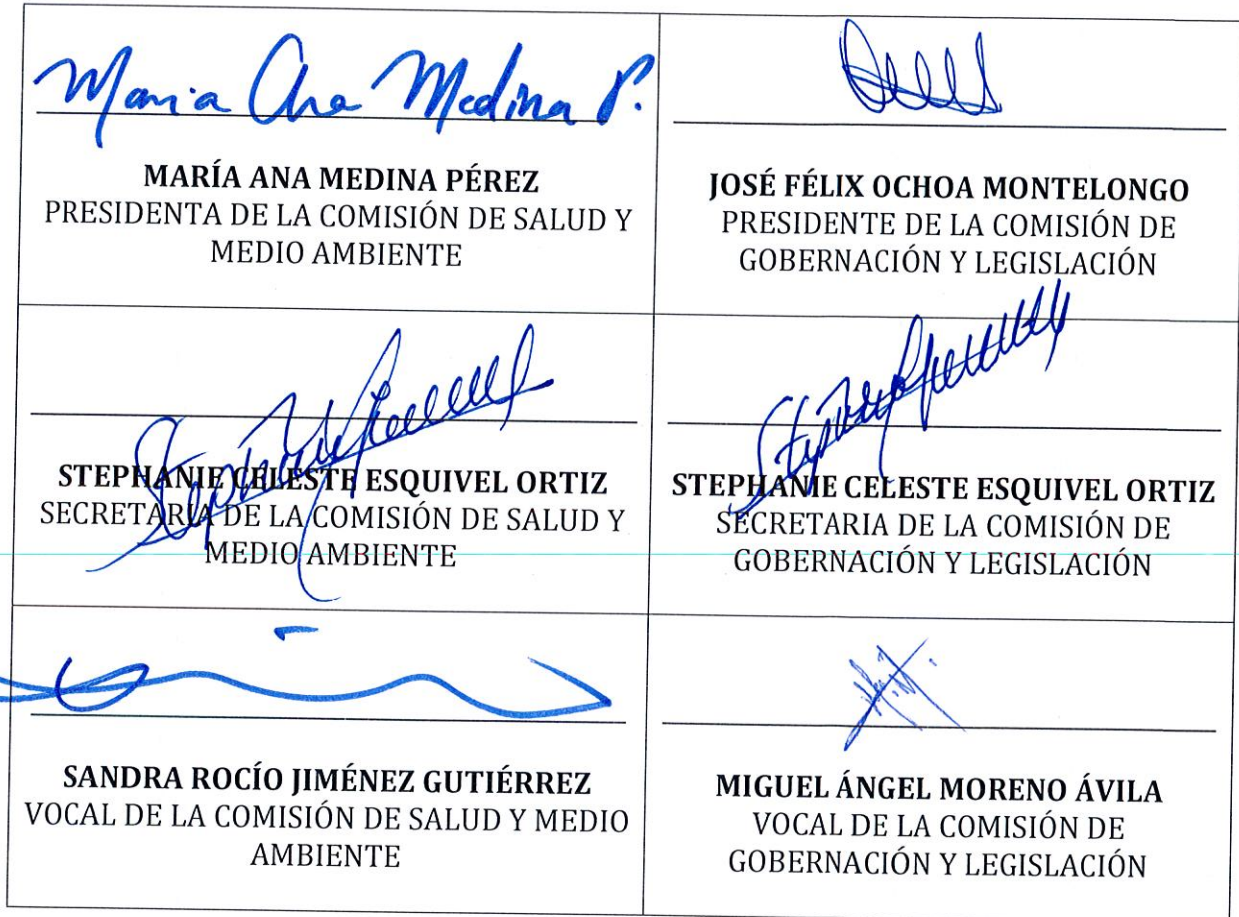 Maria Ana Medina P.
MARÍA ANA MEDINA PÉREZ
PRESIDENTA DE LA COMISIÓN DE SALUD Y
MEDIO AMBIENTE
JOSÉ FÉLIX OCHOA MONTELONGO
PRESIDENTE DE LA COMISIÓN DE
GOBERNACIÓN Y LEGISLACIÓN
STEPHANIE CELESTE ESQUIVEL ORTIZ
SECRETARIA DE LA COMISIÓN DE SALUD Y
MEDIO AMBIENTE
STEPHANIE CELESTE ESQUIVEL ORTIZ
SECRETARIA DE LA COMISIÓN DE
GOBERNACIÓN Y LEGISLACIÓN
SANDRA ROCÍO JIMÉNEZ GUTIÉRREZ
VOCAL DE LA COMISIÓN DE SALUD Y MEDIO
AMBIENTE
MIGUEL ÁNGEL MORENO ÁVILA
VOCAL DE LA COMISIÓN DE
GOBERNACIÓN Y LEGISLACIÓN